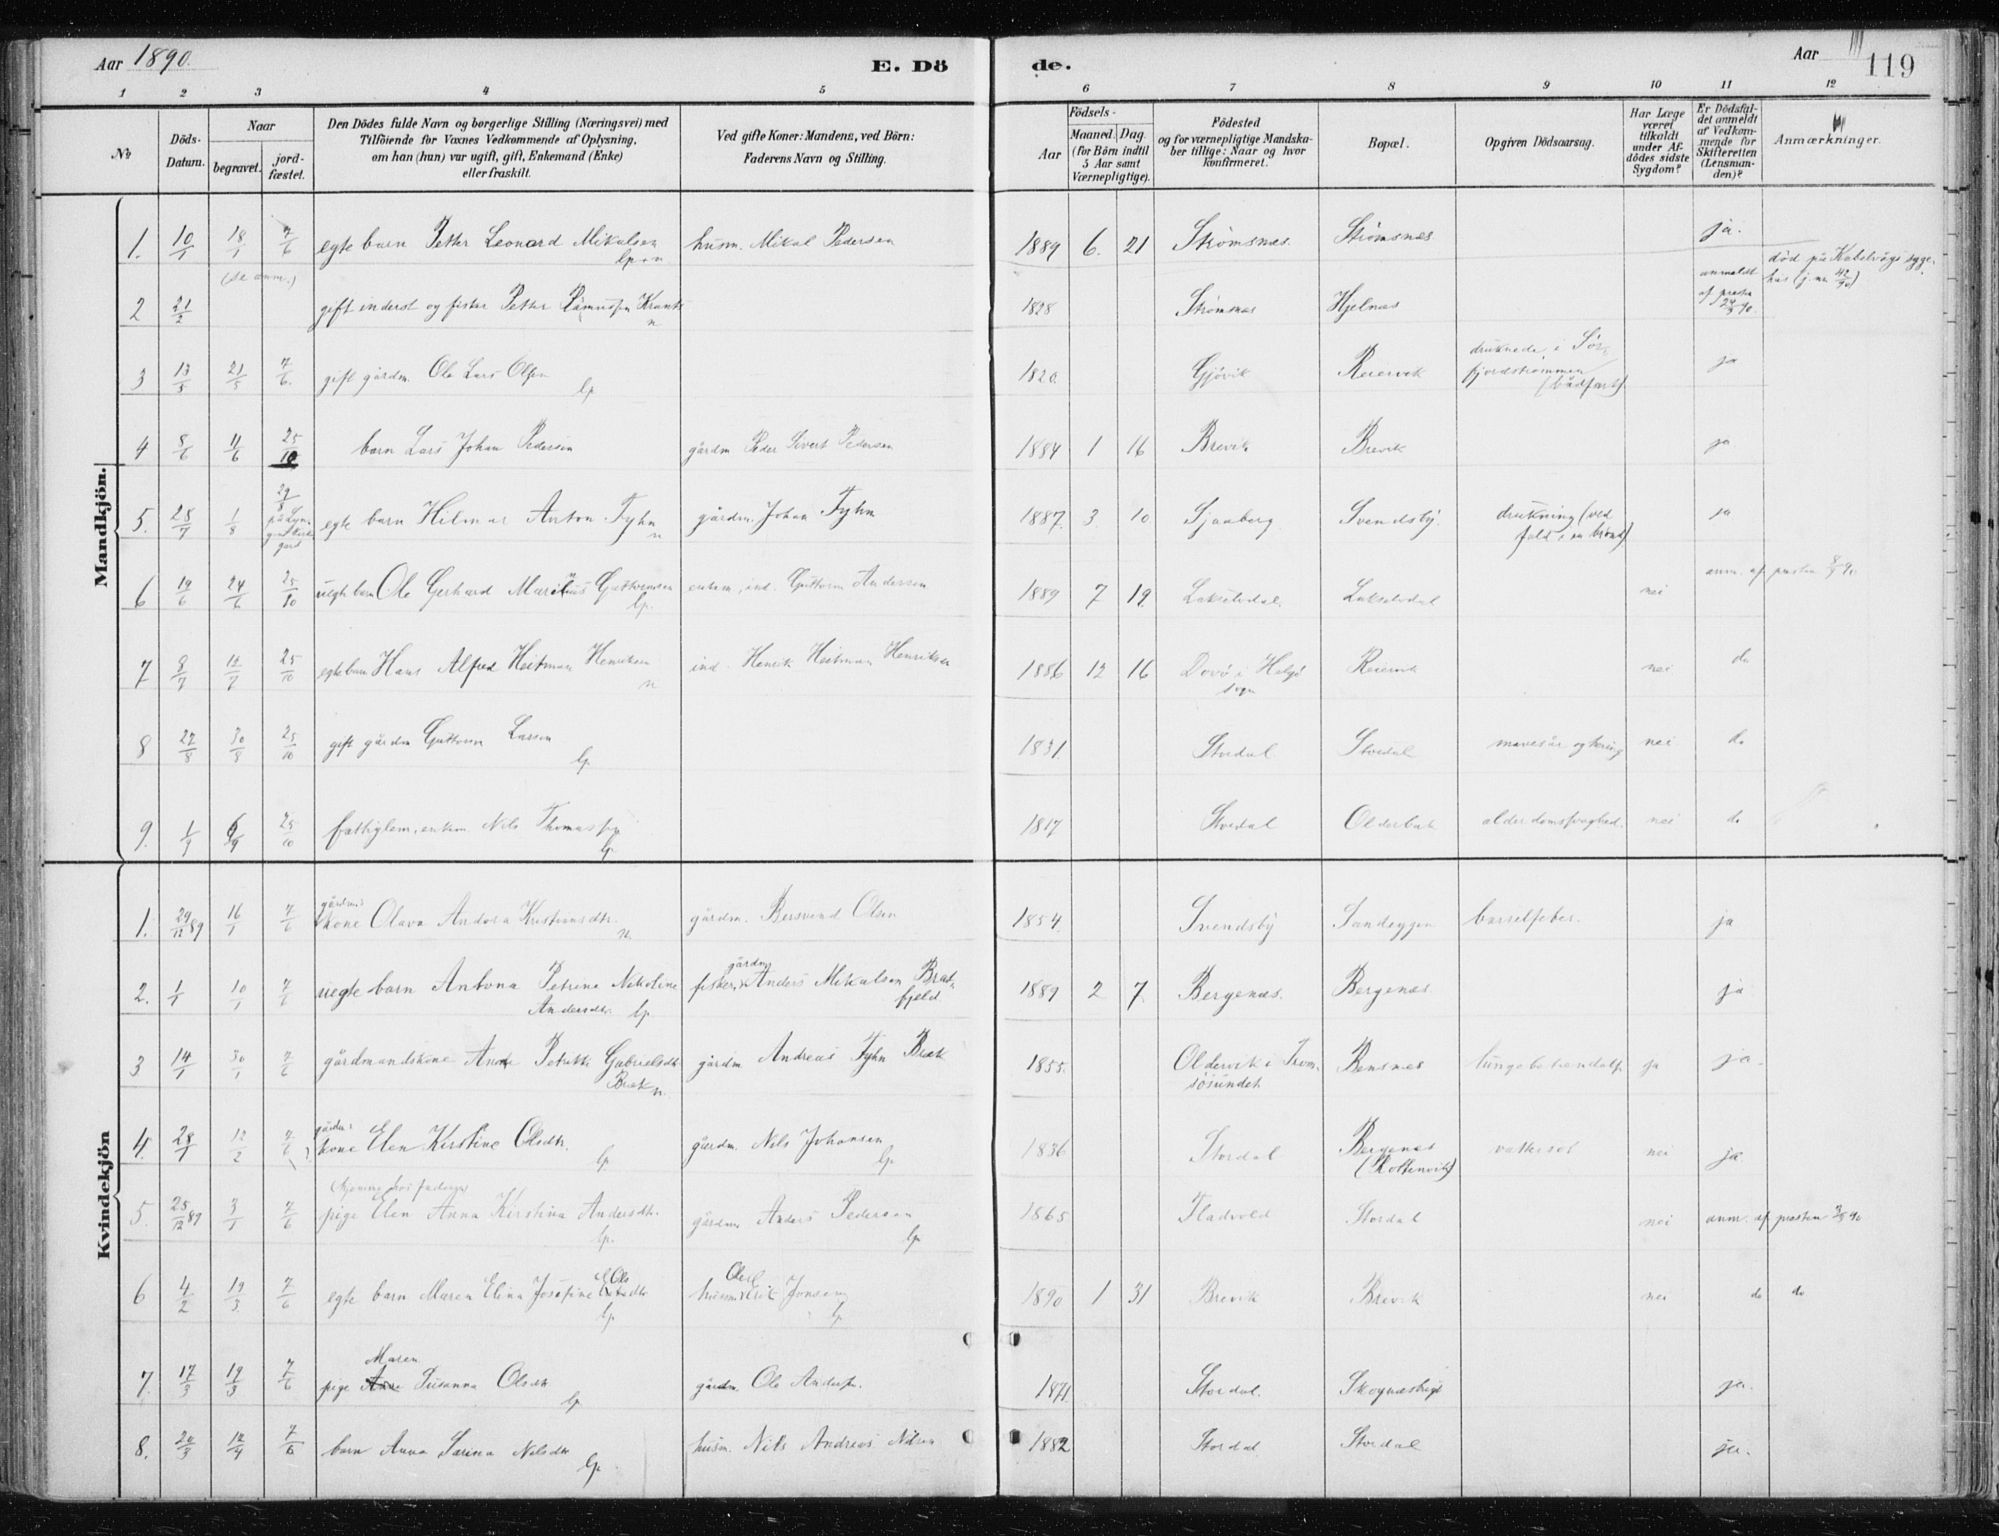 Aar 1890.
E. Dö
de.
Aar
119
1 2 3 4 5 6 7 8 9 10 11 12
No
Döds-Datum.
Naar
begravet.
jord-fæstet.
Den Dödes fulde Navn og borgerlige Stilling (Næringsvei) med
Tilföiende for Vaxnes Vedkommende af Oplysning,
om han (hun) var ugift, gift, Enkemand (Enke)
eller fraskilt.
Ved gifte Koner: Mandens, ved Börn:
Faderens Navn og Stilling.
Födsels-
Aar
Maaned. Dag.
(for Börn indtil
5 Aar samt
Værnepligtige).
Födested
og for værnepligtige Mandska-
ber tillige: Naar og hvor
konfirmeret.
Bopæl.
Opgiven Dödsaarsag.
Har Læge
været
tilkaldt
under Af-
dödes sidste
Sygdom?
Er Dödsfal-
det anmeldt
af Vedkom-
mende for
Skifteretten
(Lensman-
den)?
Anmærkninger.
Mandkjön.
1. 10/1 18/1 7/6 egte barn Petter Leonard Mikalsen husm. Mikal Pedersen 1889 6. 21 Strömsnæs. Strömsnæs. ja.
lp + n
(se anm.)
død på Kabelvågs syge-
hus
2 21/2 gift inderst og fisker Petter n 1828 Strömsnæs Hjelnæs anmeldt
af presten
3 13/5 21/5 7/6. gift gårdm. Ole Lars Olsen lp 1820. Gjövik Reiervik druknede i Sör-
fjordströmmen
(bådfart) ja
4 8/6 11/6 25/10 barn Lars Johan Pedersen gårdm Peder Sivert Pedersen 1884 1 16 Brevik Brevik ja
5. 28/7 1/8 29/8 egte barn Hilmar Anton Fyhn n gårdm. Johan Fyhn 1887. 3. 10. Sjaaberg Svendsby. drukning (ved
fald i en brönd) ja
6 19/6 24/6 25/10 uegte barn Ole Gerhard Marinius Guttormsen lp. enkem. ind. Guttorm Andersen 1889 7 19. Lakselvdal. Lakselvdal nei anm. af presten
7 8/7 12/7 25/10 egte barn Hans Alfred Heitman Henriksen n ind. Henrik Heitman Henriksen 1886 12 16 i Helgö
sogn Reiervik nei do
8 27/8 30/8 25/10 gift gårdm Guttorm Larsen lp 1831. Stordal Stordal mavesår og tæring nei do
9. 1/9 6/9 25/10 fattiglem, enkem Nils Thomassen lp 1817 Stordal Olderbak alderdomssvaghed. nei do
Kvindekjön
1. 29/12 89 16/1 7/6 gårdm.s
kone Olava Andora Kristiansdtr. n. gårdm. Bersvend Olsen 1854. Svendsby Sandeggen barselfeber. ja
2. 1/1 10/1 7/6 uegte barn Antona Petrine Nikoline
Andersdtr. lp fisker, gårdm Anders Mikalsen Bred-
fjeld 1889 2 7. Bergenæs. Bergenæs. ja
3 14/1 30/1 7/6 gårdmandskone Anne Petrikke Gabrielsdtr
Bræk n. gårdm. Andreas Fyhn Bræk 1855. Oldervik i Trom-
sösundet Bensnæs ja ja.
4. 28/1 12/2 7/6 gårdm.s
kone Elen Kirstine Olsdtr. lp gårdm. Nils Johansen lp 1836 Stordal Bergenæs
(Kottenvik) vattersot nei ja
5. 25/12 89 3/1 7/6 (hjemme hos faderen)
pige Elen Anna Kirstina Andersdtr. lp. gårdm Anders Pedersen lp 1865 Fladvold Stordal nei anm. af presten
6 4/2 19/3 7/6 egte barn Maren Elina Josefine Olsdtr lp. husm. Ole Jonsen lp 1890 1 31 Brevik Brevik nei do do
7. 17/3 19/3 7/6 pige Maren Susanna Olsdtr lp gårdm. Ole Andersen 1871. Stordal. ja.
8. 20/3 12/4 7/6 barn Anna Sarina Nilsdtr lp. husm. Nils Andreas Nilsen 1882 Stordal Stordal ja.